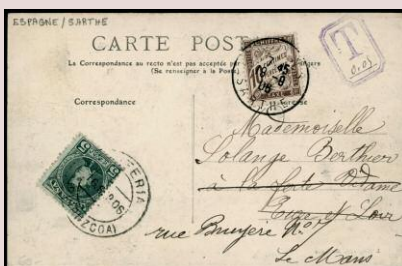 ESPAGNE / SARTHE
CARTE POSTALE
La Correspondance au recto n'est pas acceptée par
(Se renseigner à la Poste)
Correspondance
T
0.05
Mademoiselle
Solange Berthier
à la ferté Vidame
Eure et Loir
rue Bruyere N°
Le Mans